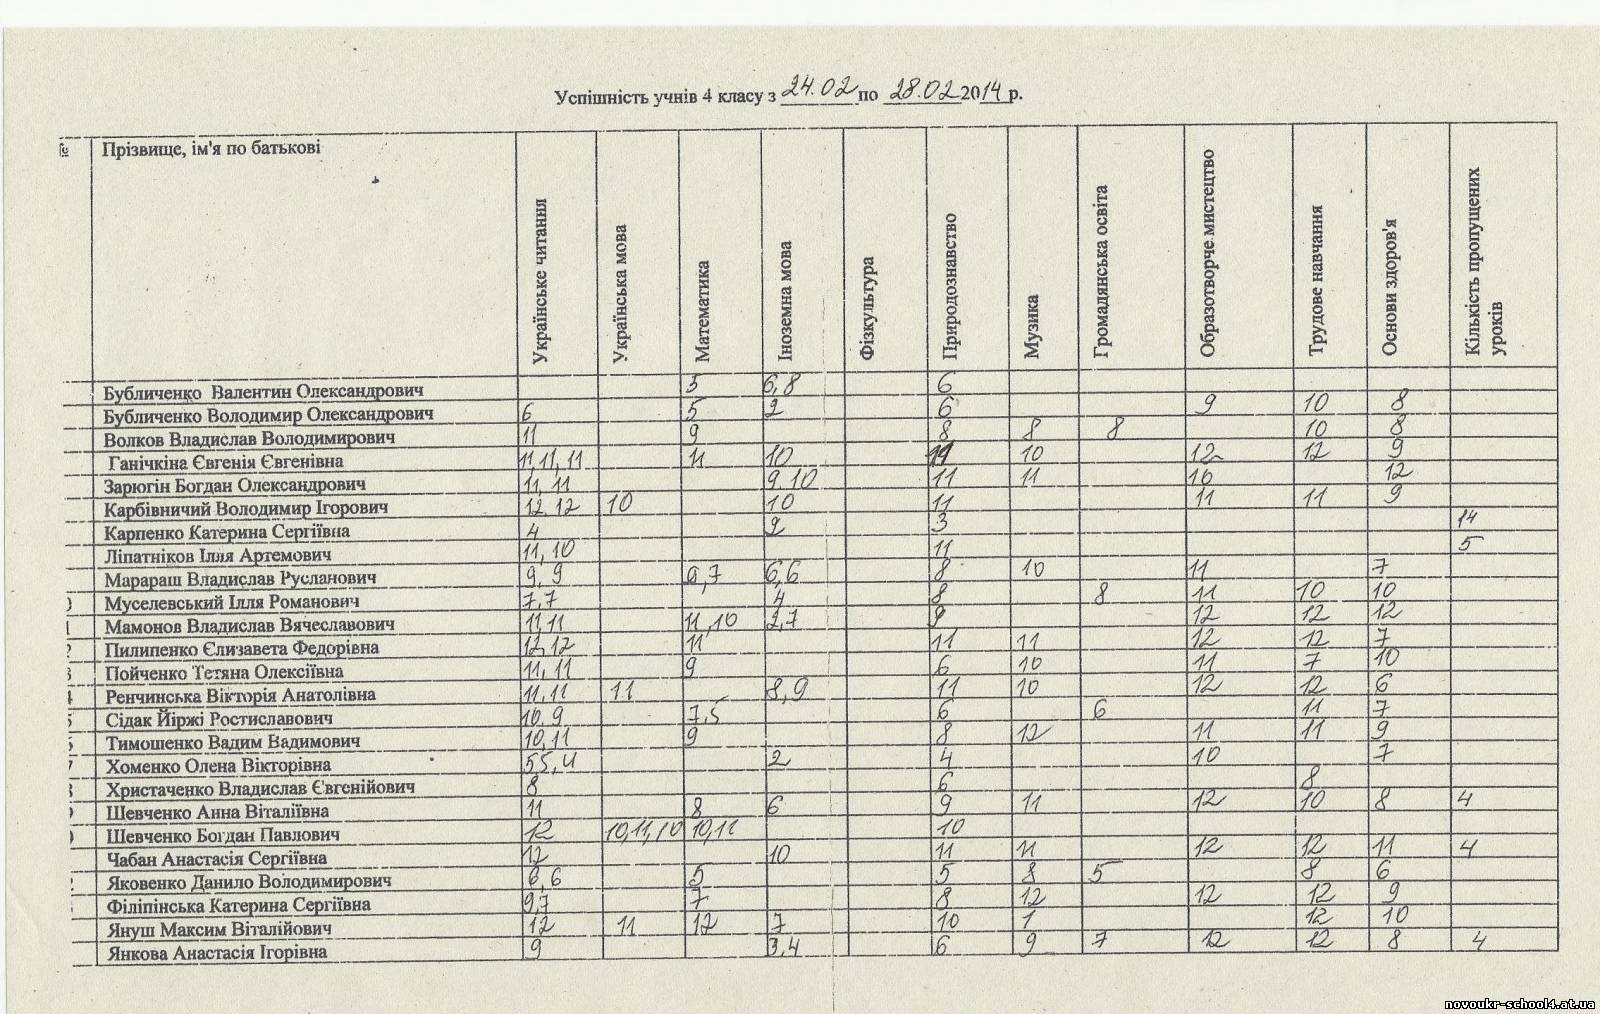 Успішність учнів 4 класу з 24.02 по 28.02 2014 р.
№ Прізвище, ім'я по батькові Українське читання Українська мова Математика Іноземна мова Фізкультура Природознавство Музика Громадянська освіта Образотворче мистецтво Трудове навчання Основи здоров'я Кількість пропущених уроків
Бубличенко Валентин Олександрович 5 6,8 6
Бубличенко Володимир Олександрович 6 5 2 6 9 10 8
Волков Владислав Володимирович 11 9 8 8 8 10 8
Ганічкіна Євгенія Євгенівна 11,11,11 11 10 11 10 12 12 9
Зарюгін Богдан Олександрович 11,11 9,10 11 11 10 12
Карбівничий Володимир Ігорович 12,12 10 10 11 11 11 9
Карпенко Катерина Сергіївна 4 2 3 14
Ліпатніков Ілля Артемович 11,10 11 5
Марараш Владислав Русланович 9,9 6,7 6,6 8 10 11 7
0 Муселевський Ілля Романович 7,7 4 8 8 11 10 10
1 Мамонов Владислав Вячеславович 11,11 11,10 2,7 9 12 12 12
2 Пилипенко Єлизавета Федорівна 12,12 11 11 11 12 12 7
3 Пойченко Тетяна Олексіївна 11,11 9 6 10 11 7 10
4 Ренчинська Вікторія Анатолівна 11,11 11 8,9 11 10 12 12 6
5 Сідак Йіржі Ростиславович 10,9 7,5 6 6 11 7
5 Тимошенко Вадим Вадимович 10,11 9 8 12 11 11 9
7 Хоменко Олена Вікторівна 5,5,4 2 4 10 7
3 Христаченко Владислав Євгенійович 8 6 8
9 Шевченко Анна Віталіївна 11 8 6 9 11 12 10 8 4
0 Шевченко Богдан Павлович 12 10,11,10 10,11 10
Чабан Анастасія Сергіївна 12 10 11 11 12 12 11 4
2 Яковенко Данило Володимирович 6,6 5 5 8 5 8 6
Філіпінська Катерина Сергіївна 9,7 7 8 12 12 12 9
Януш Максим Віталійович 12 11 12 7 10 1 12 10
Янкова Анастасія Ігорівна 9 3,4 6 9 7 12 12 8 4
novoukr-school4.at.ua